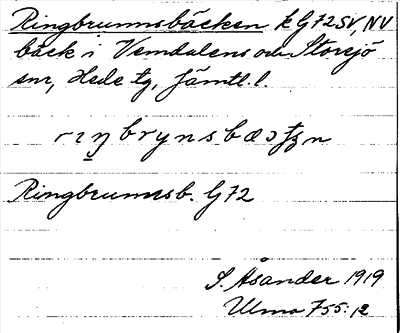 Ringbrunnsbäcken k G72SV, NV
bäck i Vemdalens och Storsjö
snr, Hede tg, Jämtl. l.
rɪŋbrynsbæɔtʒn
Ringbrunnsb. G72
S. Åsander 1919
Ulma 755:12